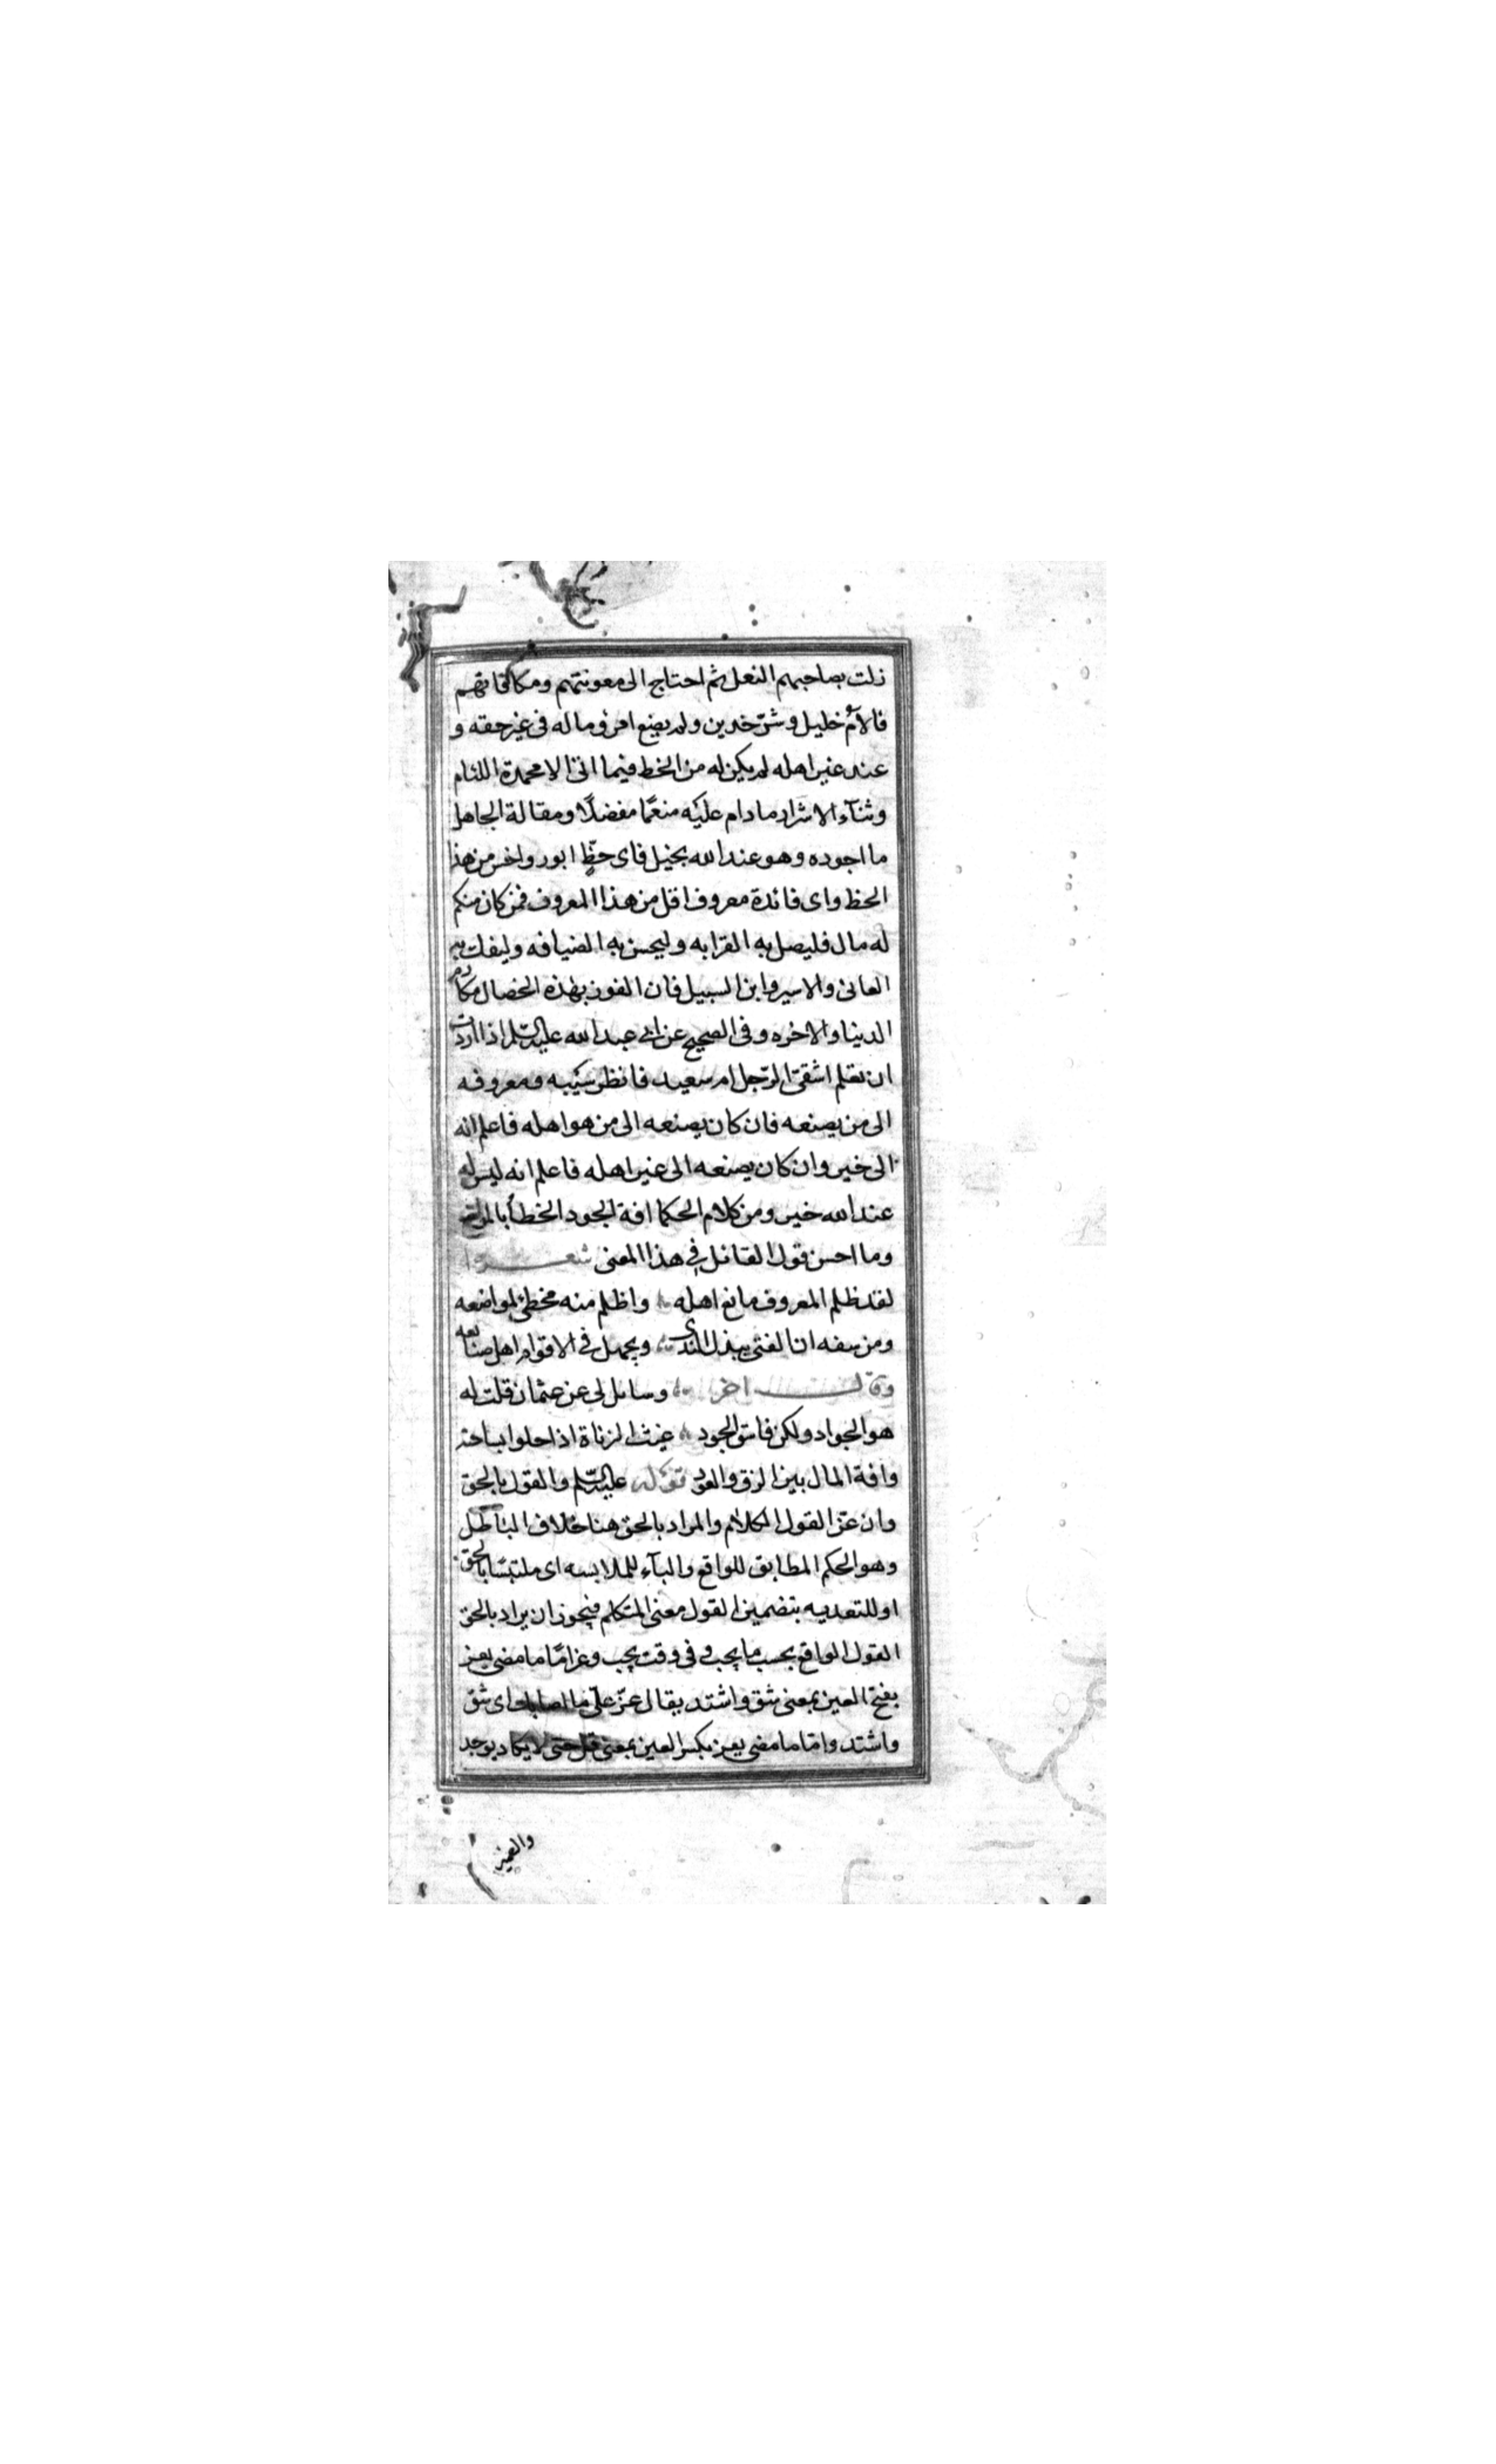 زلت بصاحبهم النعل ثم احتاج الى معونتهم ومكافاتهم
فالأم خليل وشرّ خدين ولم يضع امرؤ ماله فى غير حقه و
عند غير اهله لم يكن له من الحظ فيما اتى الا محمدة اللئام
وثنآء الاشرار ما دام عليه منعمًا مفضلًا ومقالة الجاهل
ما اجوده وهو عند الله بخيل فاى حظّ ابور واخس من هذا
الحظ واى فائدة معروف اقل من هذا المعروف فمن كان منكم
له مال فليصل به القرابه وليحسن به الضيافه وليفك به
العانى والاسير وابن السبيل فان الفوز بهذه الخصال مكارم
الدنيا والاخره وفى الصحيح عن ابى عبد الله عليه السّلم اذا اردت
ان تعلم اشقىّ الرّجل ام سعيد فانظر سيبه ومعروفه
الى من يصنعه فان كان يصنعه الى من هو اهله فاعلم انه
الى خير وان كان يصنعه الى غير اهله فاعلم انه ليس له
عند الله خير ومن كلام الحكما افة الجود الخطأ بالمواضع
وما احسن قول القائل فى هذا المعنى شعـــرا
لقد ظلم المعروف مانع اهله واظلم منه مخطئ لمواضعه
ومن سفه ان الفتى يبذل الندى ويجهل فى الاقوام اهل صنايعه
وقالـــ اخر وسائل لى عن عثمان قلت له
هو الجواد ولكن فاسق الجود غيث الزناة اذا حلوا بساحته
وافة المال بين الزق والعود قوله عليه السّلم والقول بالحق
وان عزّ القول الكلام والمراد بالحق هنا خلاف الباطل
وهو الحكم المطابق للواقع والبآء للملابسه اى ملتبسًا بالحق
او للتعديه بتضمين القول معنى التكلم فيجوز ان يراد بالحق
القول الواقع بحسب ما يجب وفى وقت يجب وعز امّا ما مضى يعز
بفتح العين بمعنى شق واشتد يقال عزّ علّى ما اصابك اى شق
واشتد وامّا ما مضى يعز بكسر العين بمعنى قل حتى لا يكاد يوجد